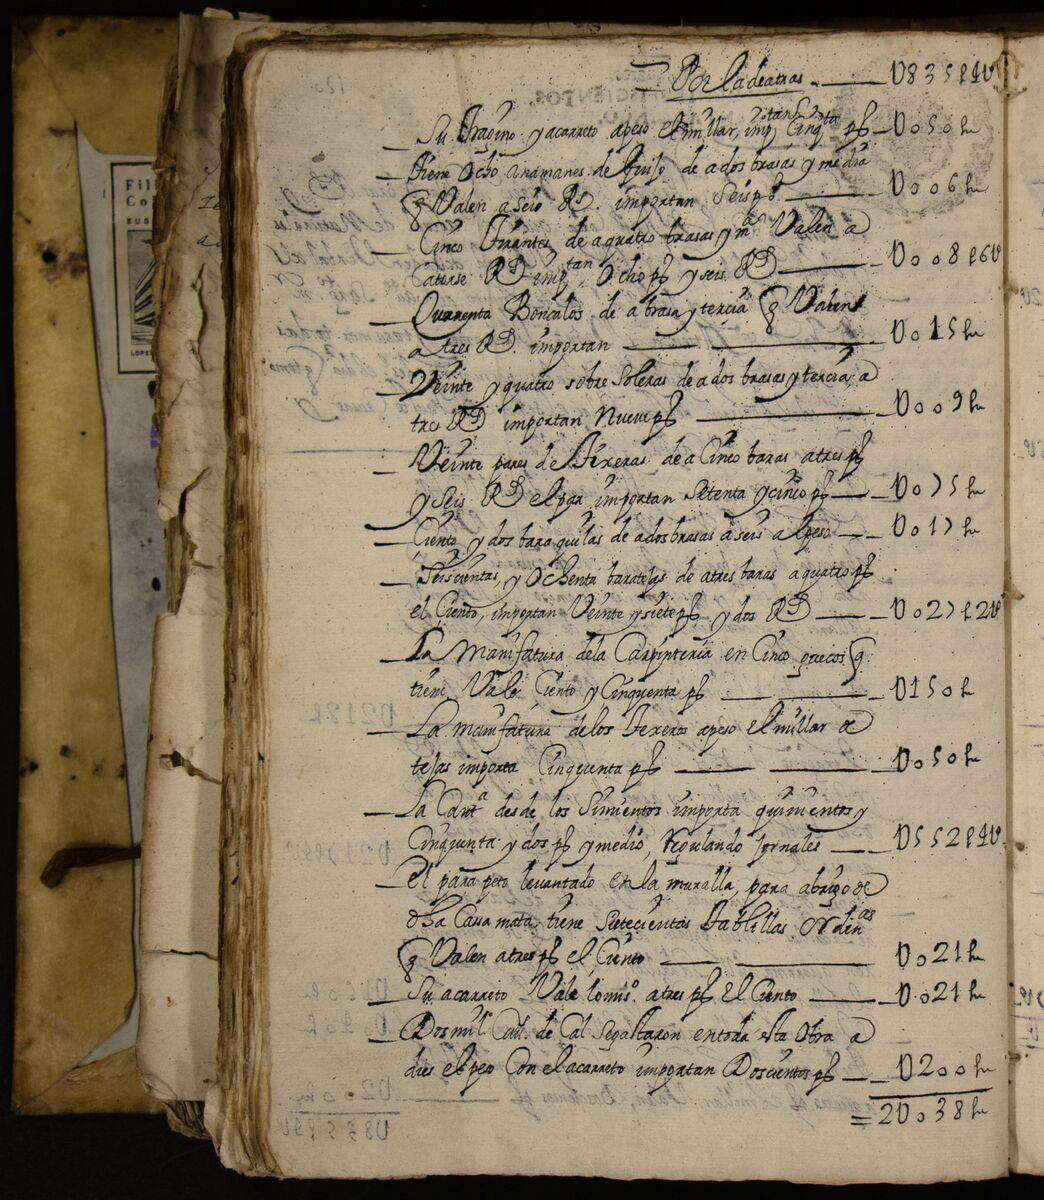 Por la de atras — U835p4U
Su Fragino y acarreto a peso el millar, imptan Cinqta ps — U050 hu
tiene Ocho anamanes de Quisp. de a dos brasas y media
q Valen a seis Rs. importan Seis ps — U006 hu
Cinco tirantes de a quatro brasas y ma Valen a
Catorse Rs imptan Ocho ps y seis Rs — U008p6U
Quarenta Boncalos de a brasa y tercia q Valen
a tres Rs. importan — U015 hu
Veinte y quatro sobre soleras de a dos brasas y tercia, a
tres Rs importan Nueve ps — U009 hu
Veinte pares de tixeras de a Cinco baras a tres ps
y seis Rs el par importan Setenta y cinco ps — U075 hu
Ciento y dos baraquilas de a dos brasas a seis al peso — U017 hu
Seiscientas, y Ochenta baratejas de a tres baras a quatro ps
el Ciento, importan Veinte y siete ps y dos Rs — U027p2U
La Manifatura de la Carpinteria en Cinco guecos q
tiene Vale Ciento y Cinquenta ps — U150 hu
La manifatura de los texeros a peso el millar de
tejas importa Cinquenta ps — U050 hu
La Canta desde los Simientos importa quinientos y
Cinquenta y dos ps y medio, regulando jornales — U552p4U
el parapeto levantado en la muralla, para abrigo de
dha Cassamata, tiene Sietecientas tablillas Ordinas
q Valen a tres ps el Ciento — U021 hu
Su acarreto Vale lo miso. a tres ps el Ciento — U021 hu
Dos mil Cau. de Cal se gastaron en toda esta Obra a
dies el peso Con el acarreto importan Doscientos ps — U200 hu
= 2U038 hu